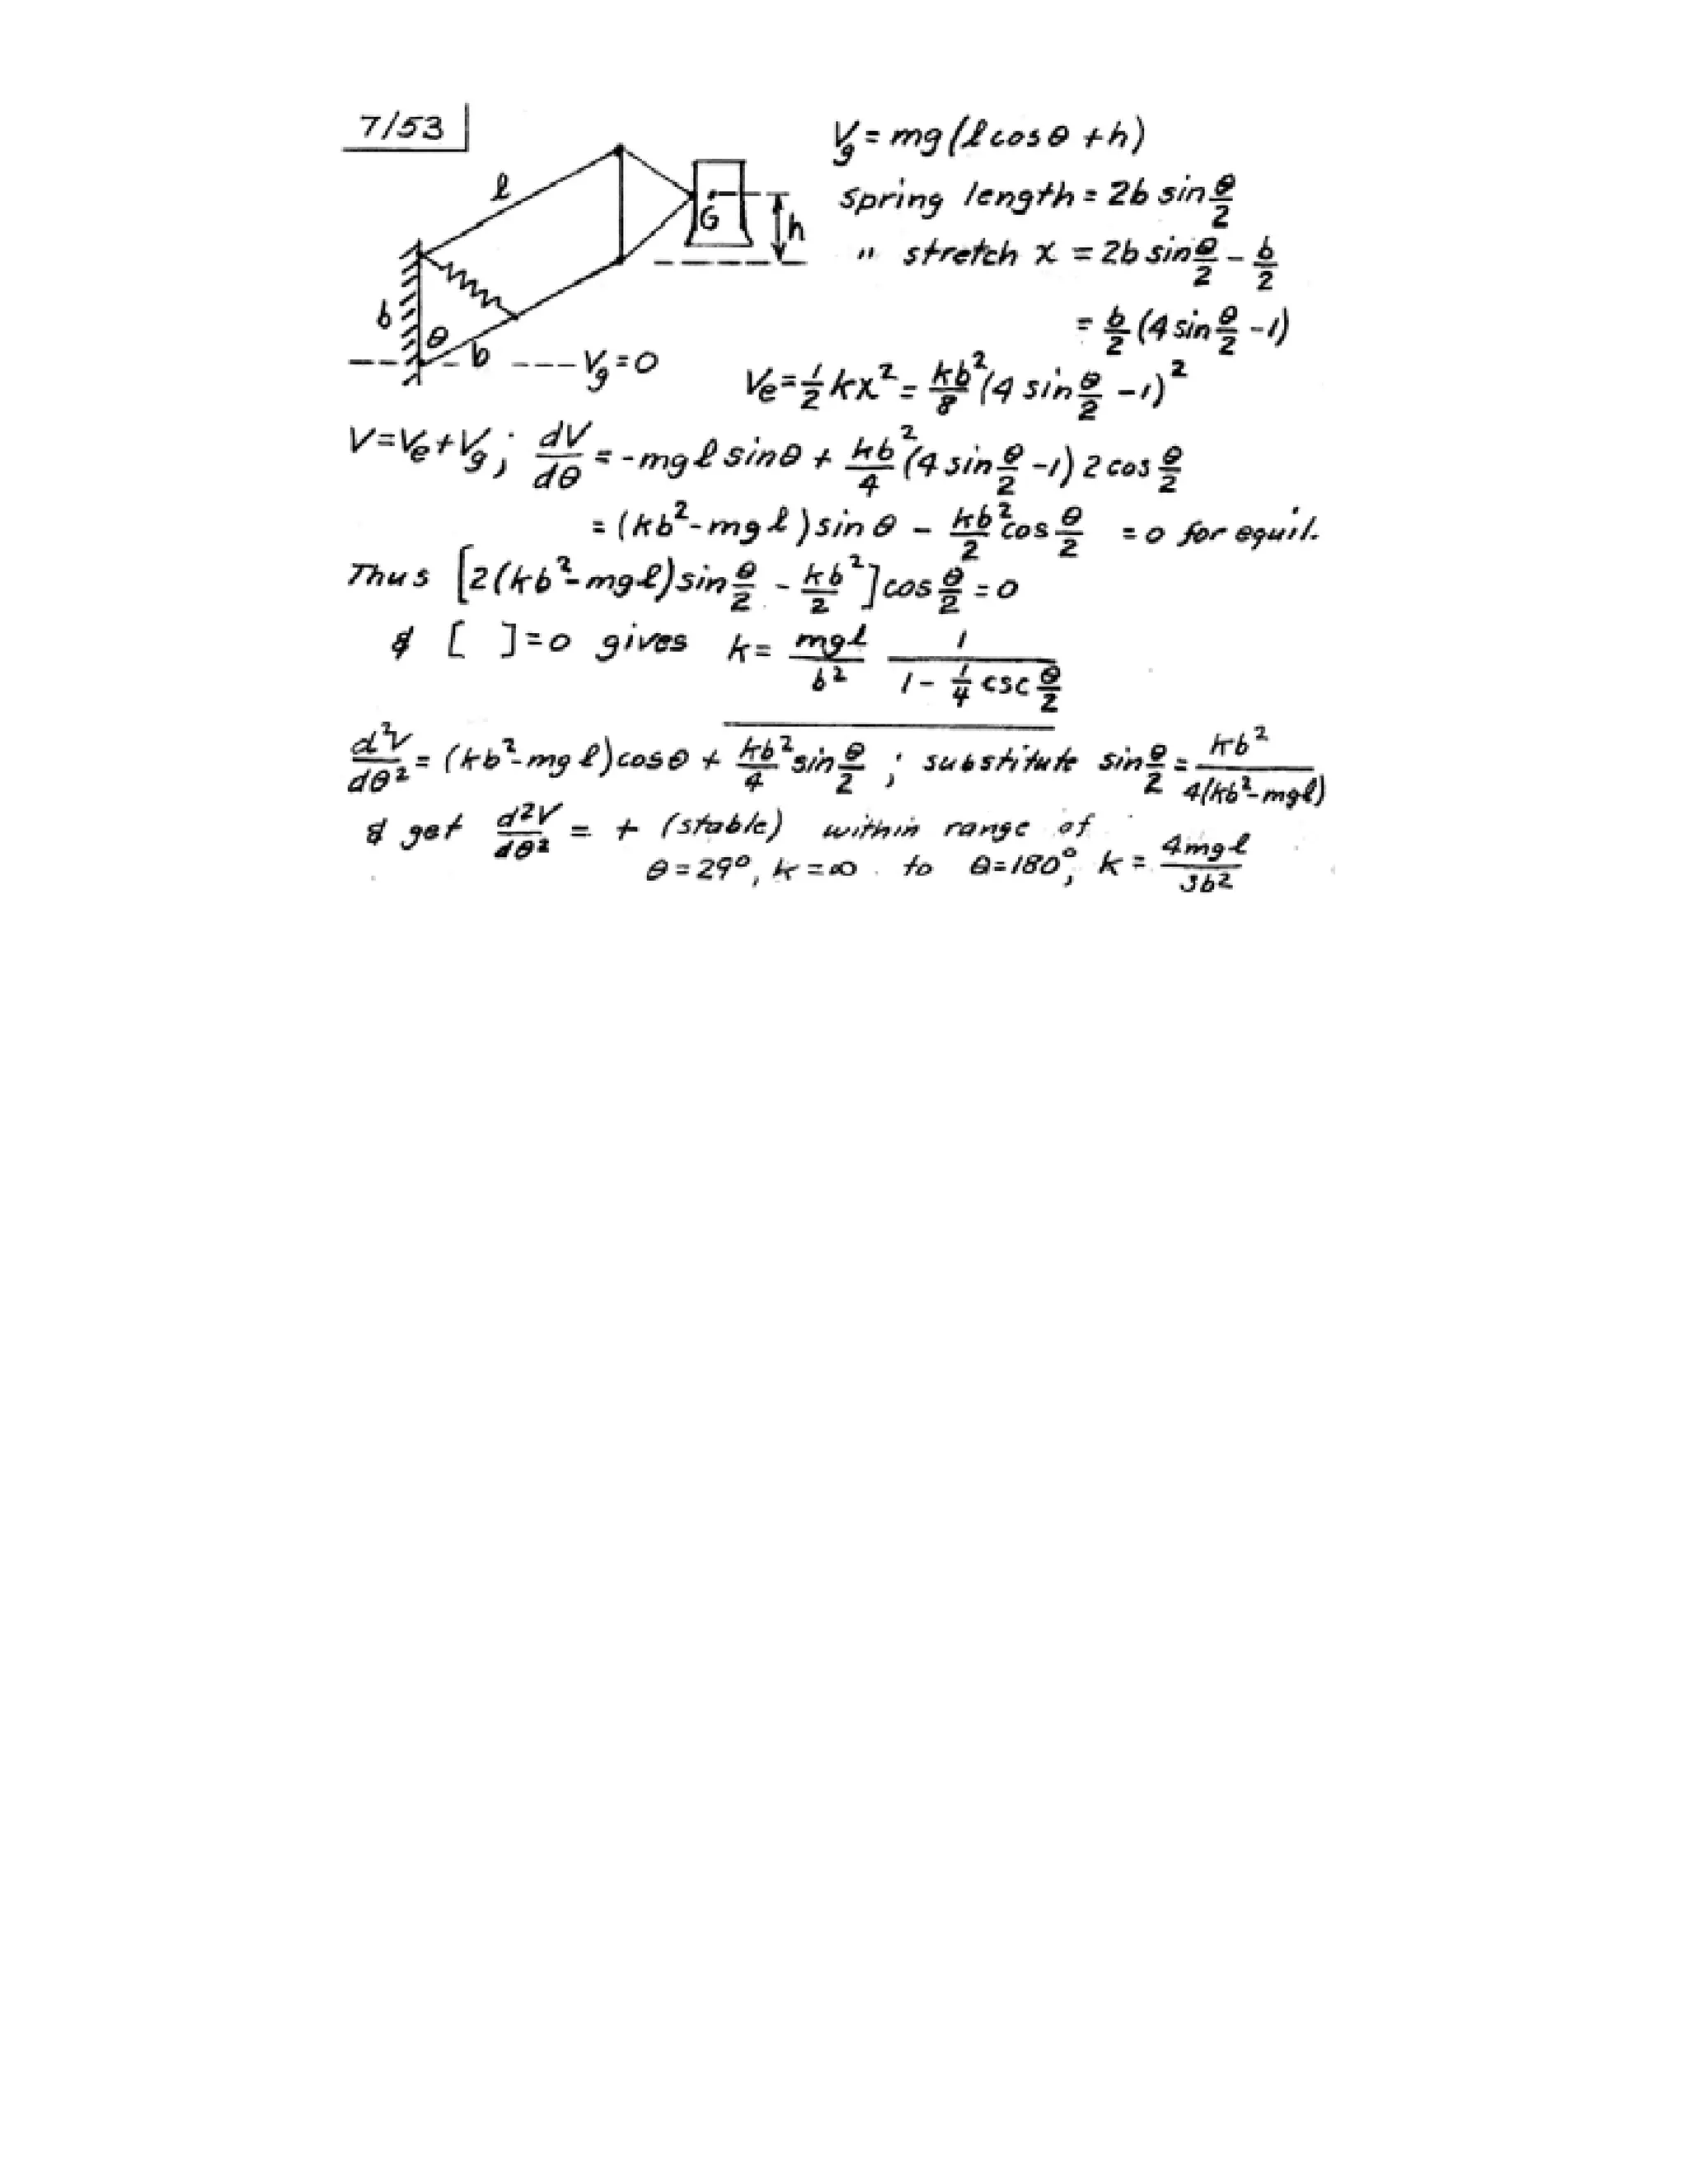 7/53
l
G
h
b
θ
b
V_g = 0
V_g = mg (l cos θ + h)
spring length = 2b sin θ/2
" stretch x = 2b sin θ/2 - b/2
= b/2 (4 sin θ/2 - 1)
V_e = 1/2 kx² = kb²/8 (4 sin θ/2 - 1)²
V = V_e + V_g ; dV/dθ = -mg l sin θ + kb²/4 (4 sin θ/2 - 1) 2 cos θ/2
= (kb² - mg l) sin θ - kb²/2 cos θ/2 = 0 for equil.
Thus [2(kb² - mg l) sin θ/2 - kb²/2] cos θ/2 = 0
& [ ] = 0 gives k = mgl/b² 1/(1 - 1/4 csc θ/2)
d²V/dθ² = (kb² - mg l) cos θ + kb²/4 sin θ/2 ; substitute sin θ/2 = kb²/4(kb² - mgl)
& get d²V/dθ² = + (stable) within range of
θ = 29°, k = ∞ to θ = 180°, k = 4mgl/3b²